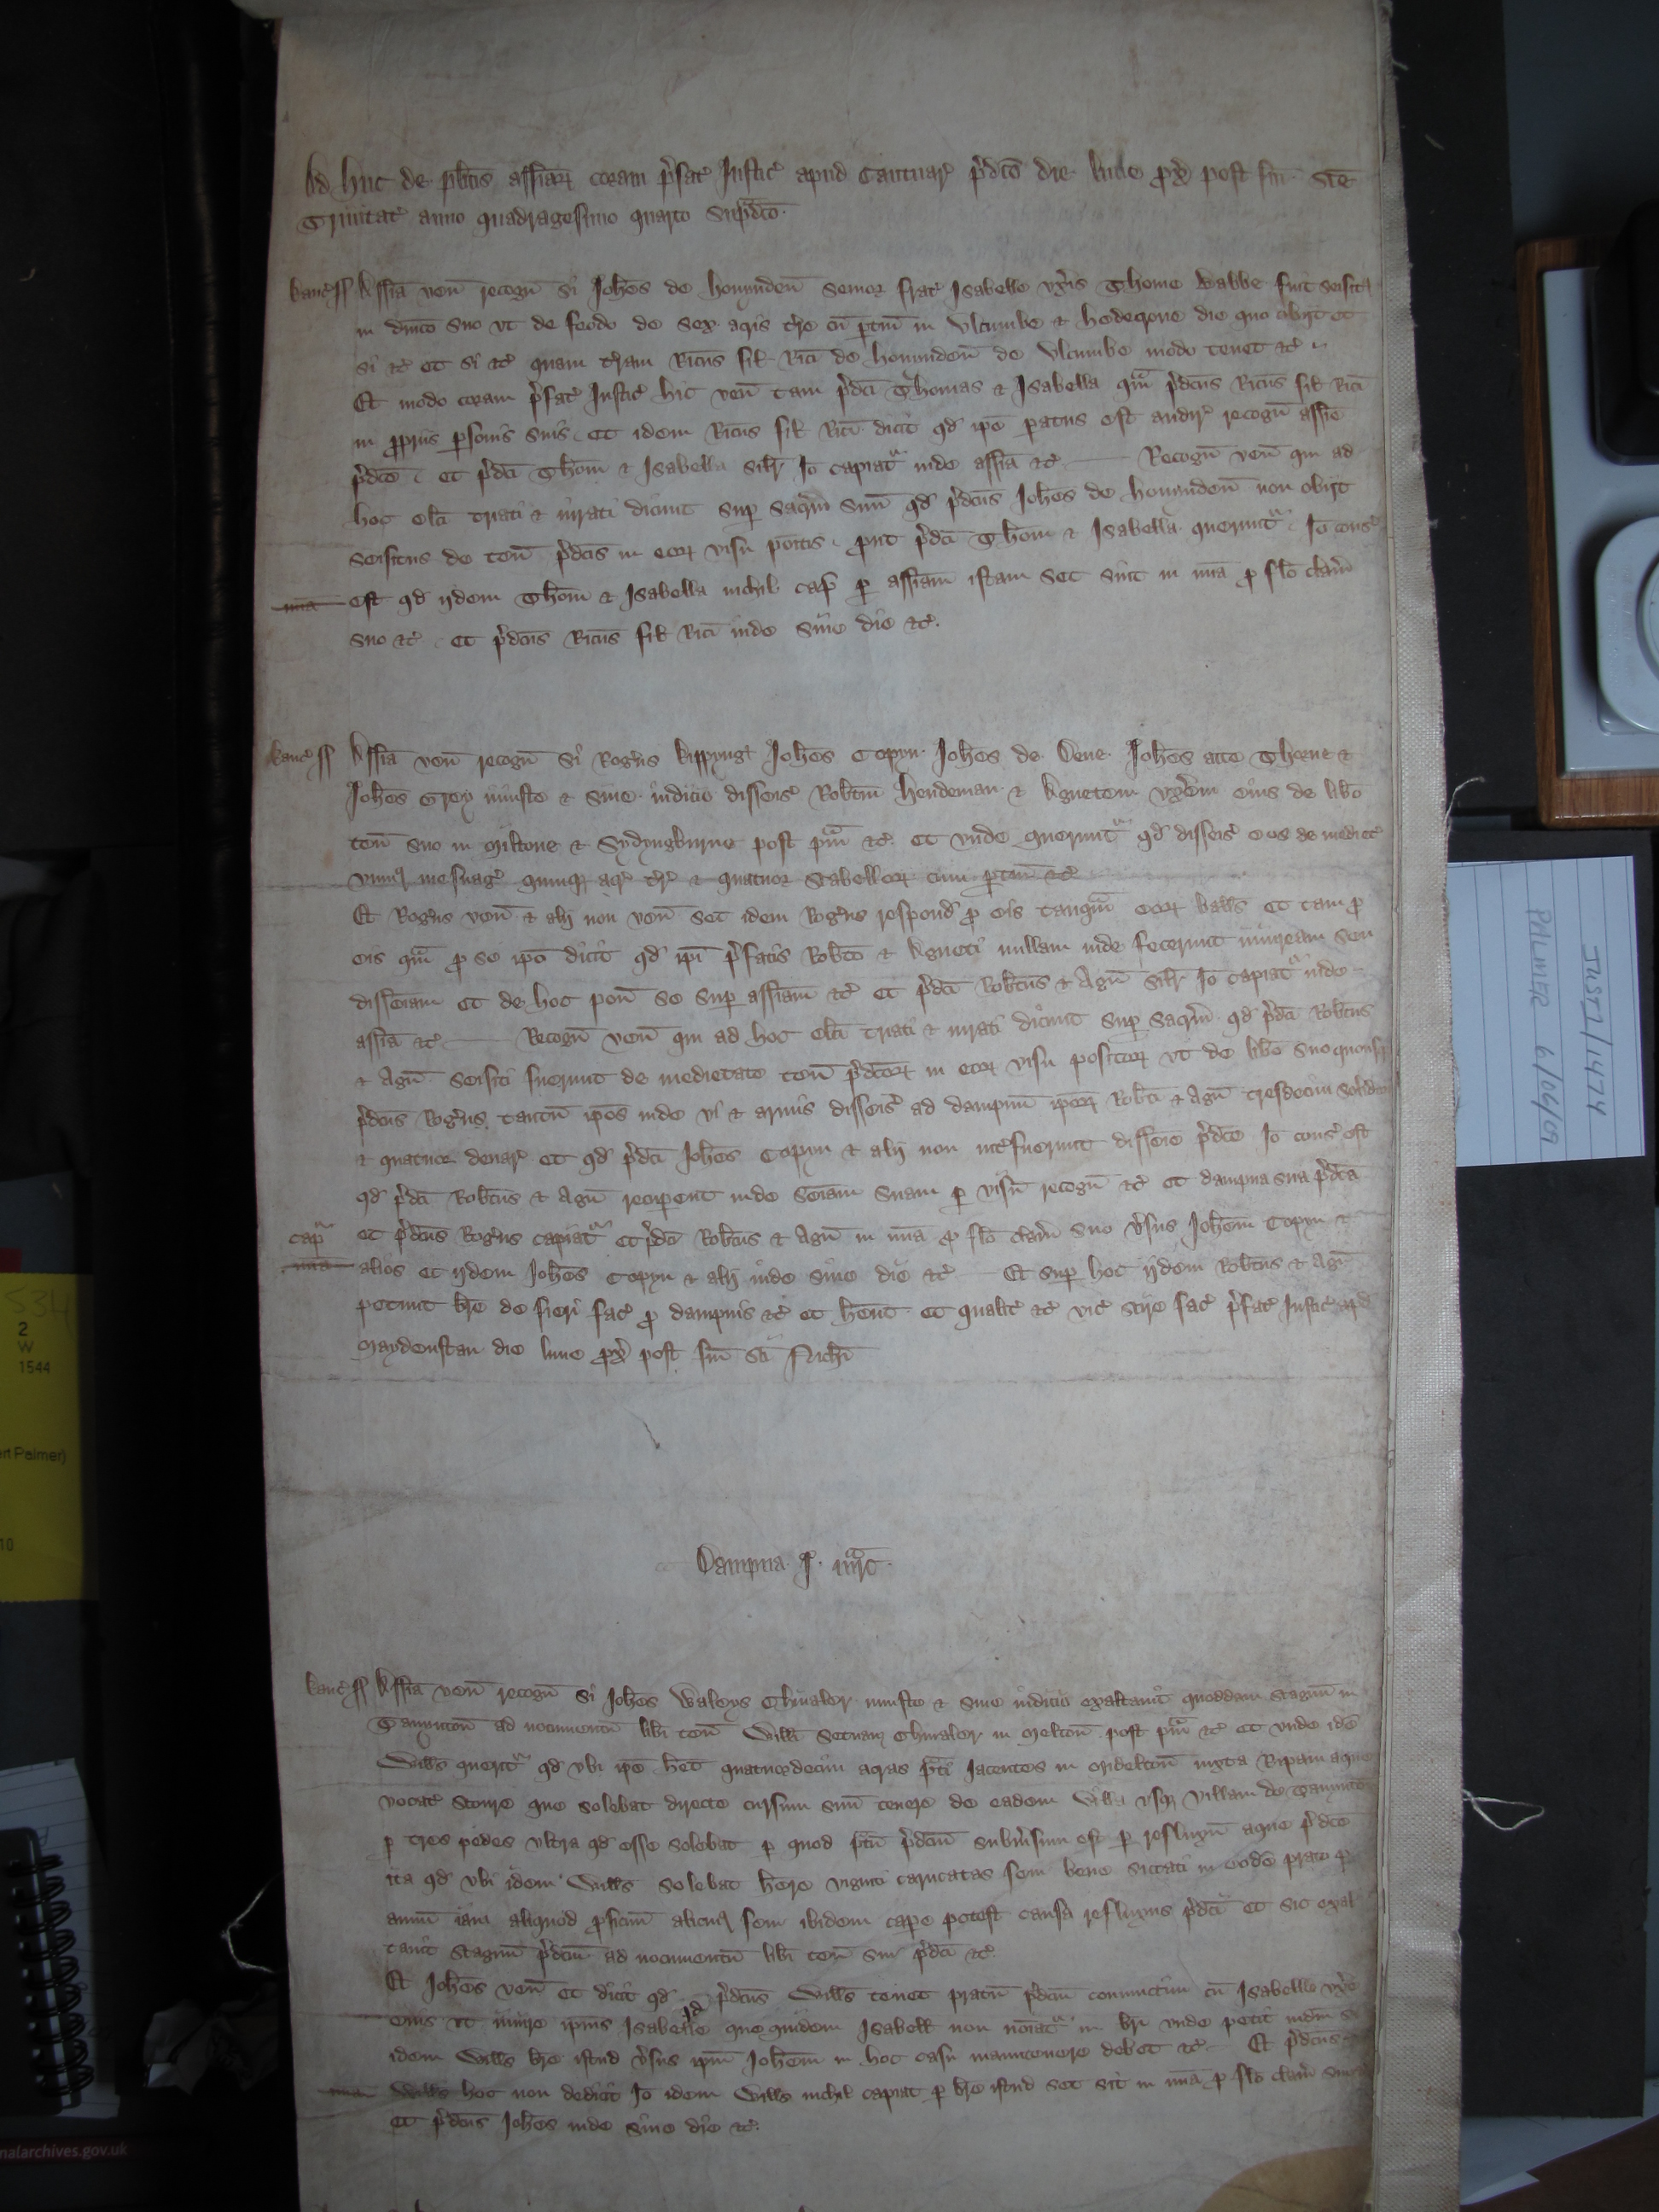 Ad huc de plitis assisar coram prefat Justic apud Cantuar predco die Lune prox post fm sce
Trinitat anno quadragesimo quarto supradco
Kanc ss Assia ven recogn si Johes de Houynden senior frat Isabelle uxis Thome Wabbe fuit seisit
in dnico suo ut de feodo de sex acris tre cu ptin in Ulcumbe & Hedecrone die quo obijt et
si &c et si &c quam tram Ricus fil Rici de Houynden de Ulcumbe modo tenet &c
Et modo coram prefat Justic hic ven tam predci Thomas & Isabella qam predcus Ricus fil Rici
in propriis psonis suis Et idem Ricus fil Rici dicit qd ipe paratus est audir recogn assie
predce et predci Thom & Isabella silr Io capiat inde assia &c Recogn ven qui ad
hoc elci triati & iurati dicunt sup sacrm suu qd predcus Johes de Houynden non obijt
seisitus de ten predcis in eor visu positis prout predci Thom & Isabella querunt Io cons
mia est qd ijdem Thom & Isabella nichil cap p assiam istam set sint in mia p flo clam
suo &c et predcus Ricus fil Rici inde sine die &c
Kanc ss Assia ven recogn si Rogus Kippyng Johes Copyn Johes de Dene Johes atte Thorne &
Johes Grey iniuste & sine iudicio disseis Robtum Hendeman & Agnetem uxem eius de libo
ten suo in Miltone & Sydyngburne post pam &c et unde querunt qd disseis eos de mediet
unius mesuag quinq acr tre & quatuor stabellor cum ptin &c
Et Rogus ven & alij non ven set idem Rogus respond p eis tanqam eor ballis et tam p
eis qam p se ipo dicit qd ipi prefatis Robto & Agneti nullam inde fecerunt iniuriam seu
disseiam et de hoc pon se sup assiam &c et predci Robtus & Agn silr Io capiat inde
assia &c Recogn ven qui ad hoc elci triati & iurati dicunt sup sacrm qd predci Robtus
& Agn seisiti fuerunt de medietate ten predcor in eor visu positor ut de libo suo quousq
predcus Rogus tantu ipos inde vi & armis disseis ad dampnu ipor Robti & Agn tresdecim solidor
& quatuor denar et qd predci Johes Copyn & alij non intfuerunt disseie predce Io cons est
qd predci Robtus & Agn recuperent inde seiam suam p visu recogn &c et dampna sua predca
cap et predcus Rogus capiat et predci Robtus & Agn in mia p flo clam suo vsus Johem Copyn &
mia alios et ijdem Johes Copyn & alij inde sine die &c Et sup hoc ijdem Robtus & Agn
petunt bre de fieri fac p dampnis &c et hent et qualit &c vic scire fac prefat Justic apd
Maydenstan die lune prox post fm sci Michis
Dampna j marc
Kanc ss Assia ven recogn si Johes Waleys Chiualer iniuste & sine iudicio exaltauit quoddam stagnu in
Tanynton ad nocumentu libi ten Willi Setuanz Chiualer in Melton post pam &c et unde ide
Wills querit qd ubi ipe het quatuordecim acras pti iacentes in Middelton iuxta Ripam aque
vocat Stoure que solebat directe cursum suu tenere de eadem villa usq villam de Tanynton
p tres pedes ultra qd esse solebat p quod ptu predcum submsum est p refluxu aque predce
ita qd ubi idem Wills solebat here viginti carucatas feni bene siccati in eode prato p
annu iam aliquod pficuu alicuius feni ibidem cape potest causa refluxus predci et sic exal
tauit stagnu predcum ad nocumentu libi ten sui predci &c
Et Johes ven et dicit qd predcus Wills tenet pratu predcum coniunctim cu Isabella uxe
eius ut in iure ipius Isabelle que quidem Isabell non noiat in bri unde petit iudm si
idem Wills bre istud vsus ipm Johem in hoc casu manutenere debet &c Et predcus
mia Wills hoc non dedicit Io idem Wills nichil capiat p bre istud set sit in mia p flo clam suo
et predcus Johes inde sine die &c
JUST 1/1474
PALMER 6/06/09
534
2
W
1544
ert Palmer)
10
nalarchives.gov.uk